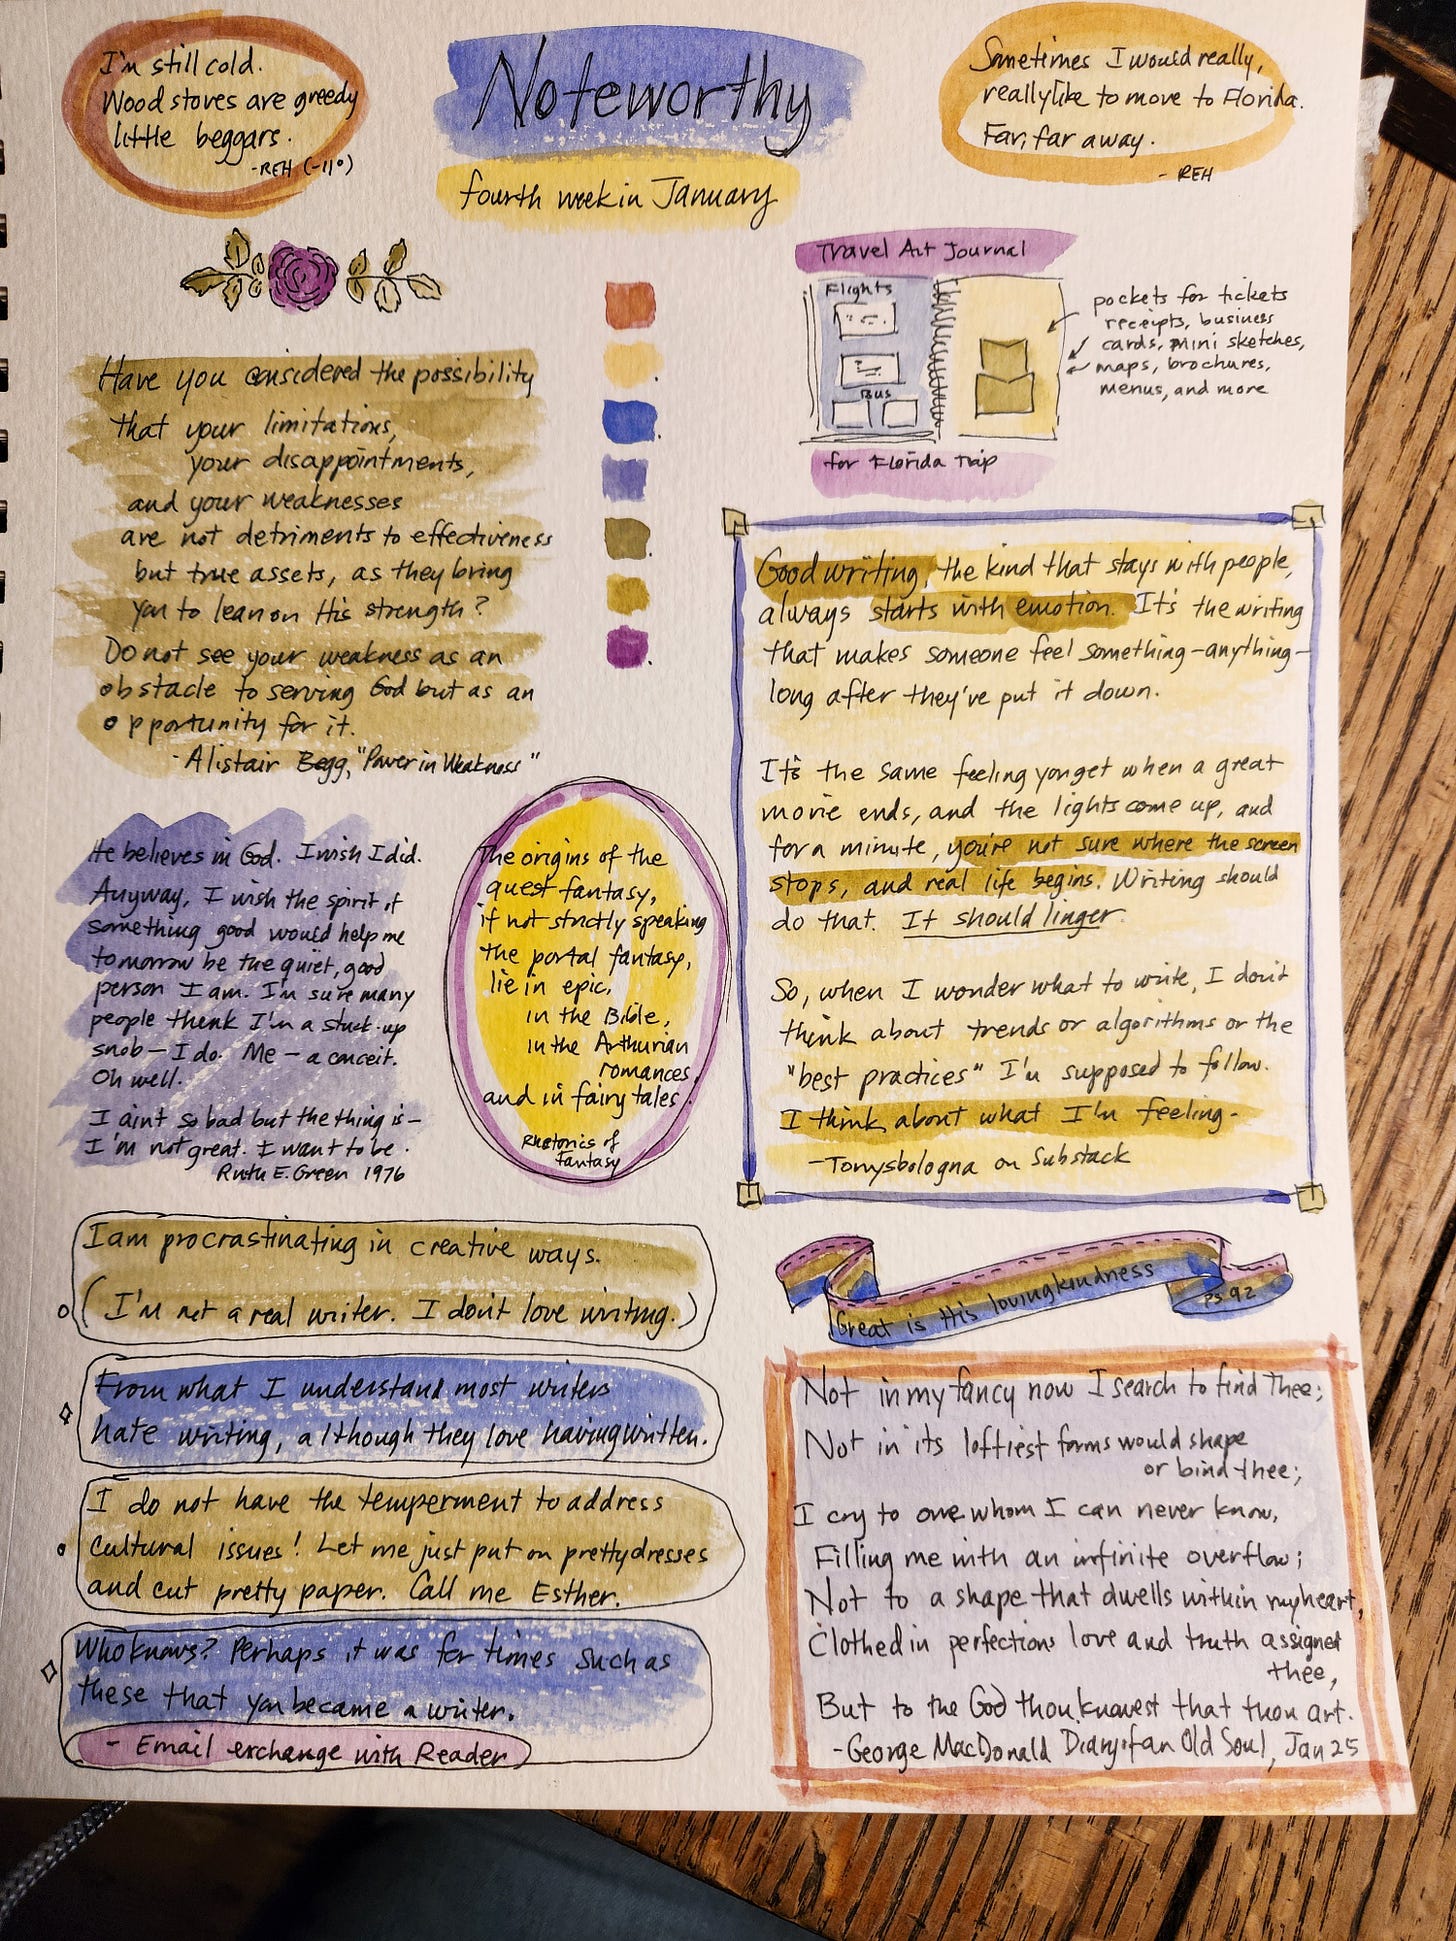 I'm still cold.
Wood stoves are greedy
little beggars.
-REH (-11°)
Noteworthy
fourth week in January
Sometimes I would really,
really like to move to Florida.
Far, far away.
- REH
Travel Art Journal
Flights
Bus
pockets for tickets
receipts, business
cards, mini sketches,
maps, brochures,
menus, and more
for Florida Trip
Have you considered the possibility
that your limitations,
your disappointments,
and your weaknesses
are not detriments to effectiveness
but true assets, as they bring
you to lean on His strength?
Do not see your weakness as an
obstacle to serving God but as an
opportunity for it.
- Alistair Begg, "Power in Weakness"
Good writing, the kind that stays with people,
always starts with emotion. It's the writing
that makes someone feel something-anything-
long after they've put it down.
It's the same feeling you get when a great
movie ends, and the lights come up, and
for a minute, you're not sure where the screen
stops, and real life begins. Writing should
do that. It should linger.
So, when I wonder what to write, I don't
think about trends or algorithms or the
"best practices" I'm supposed to follow.
I think about what I'm feeling-
-Tomysbologna on Substack
He believes in God. I wish I did.
Anyway, I wish the spirit of
something good would help me
tomorrow be the quiet, good
person I am. I'm sure many
people think I'm a stuck-up
snob - I do. Me - a conceit.
Oh well.
I aint so bad but the thing is-
I'm not great. I want to be.
Ruth E. Green 1976
The origins of the
quest fantasy,
if not strictly speaking
the portal fantasy,
lie in epic,
in the Bible,
in the Arthurian
romances,
and in fairy tales.
Rhetorics of
Fantasy
I am procrastinating in creative ways.
(I'm not a real writer. I don't love writing.)
From what I understand most writers
hate writing, although they love having written.
I do not have the temperment to address
cultural issues! Let me just put on pretty dresses
and cut pretty paper. Call me Esther.
Who knows? Perhaps it was for times such as
these that you became a writer.
- Email exchange with Reader
Great is His lovingkindness
PS 92
Not in my fancy now I search to find Thee;
Not in its loftiest forms would shape
or bind thee;
I cry to one whom I can never know,
Filling me with an infinite overflow;
Not to a shape that dwells within my heart,
Clothed in perfections love and truth assigned
thee,
But to the God thou knowest that thou art.
-George MacDonald Diary of an Old Soul, Jan 25